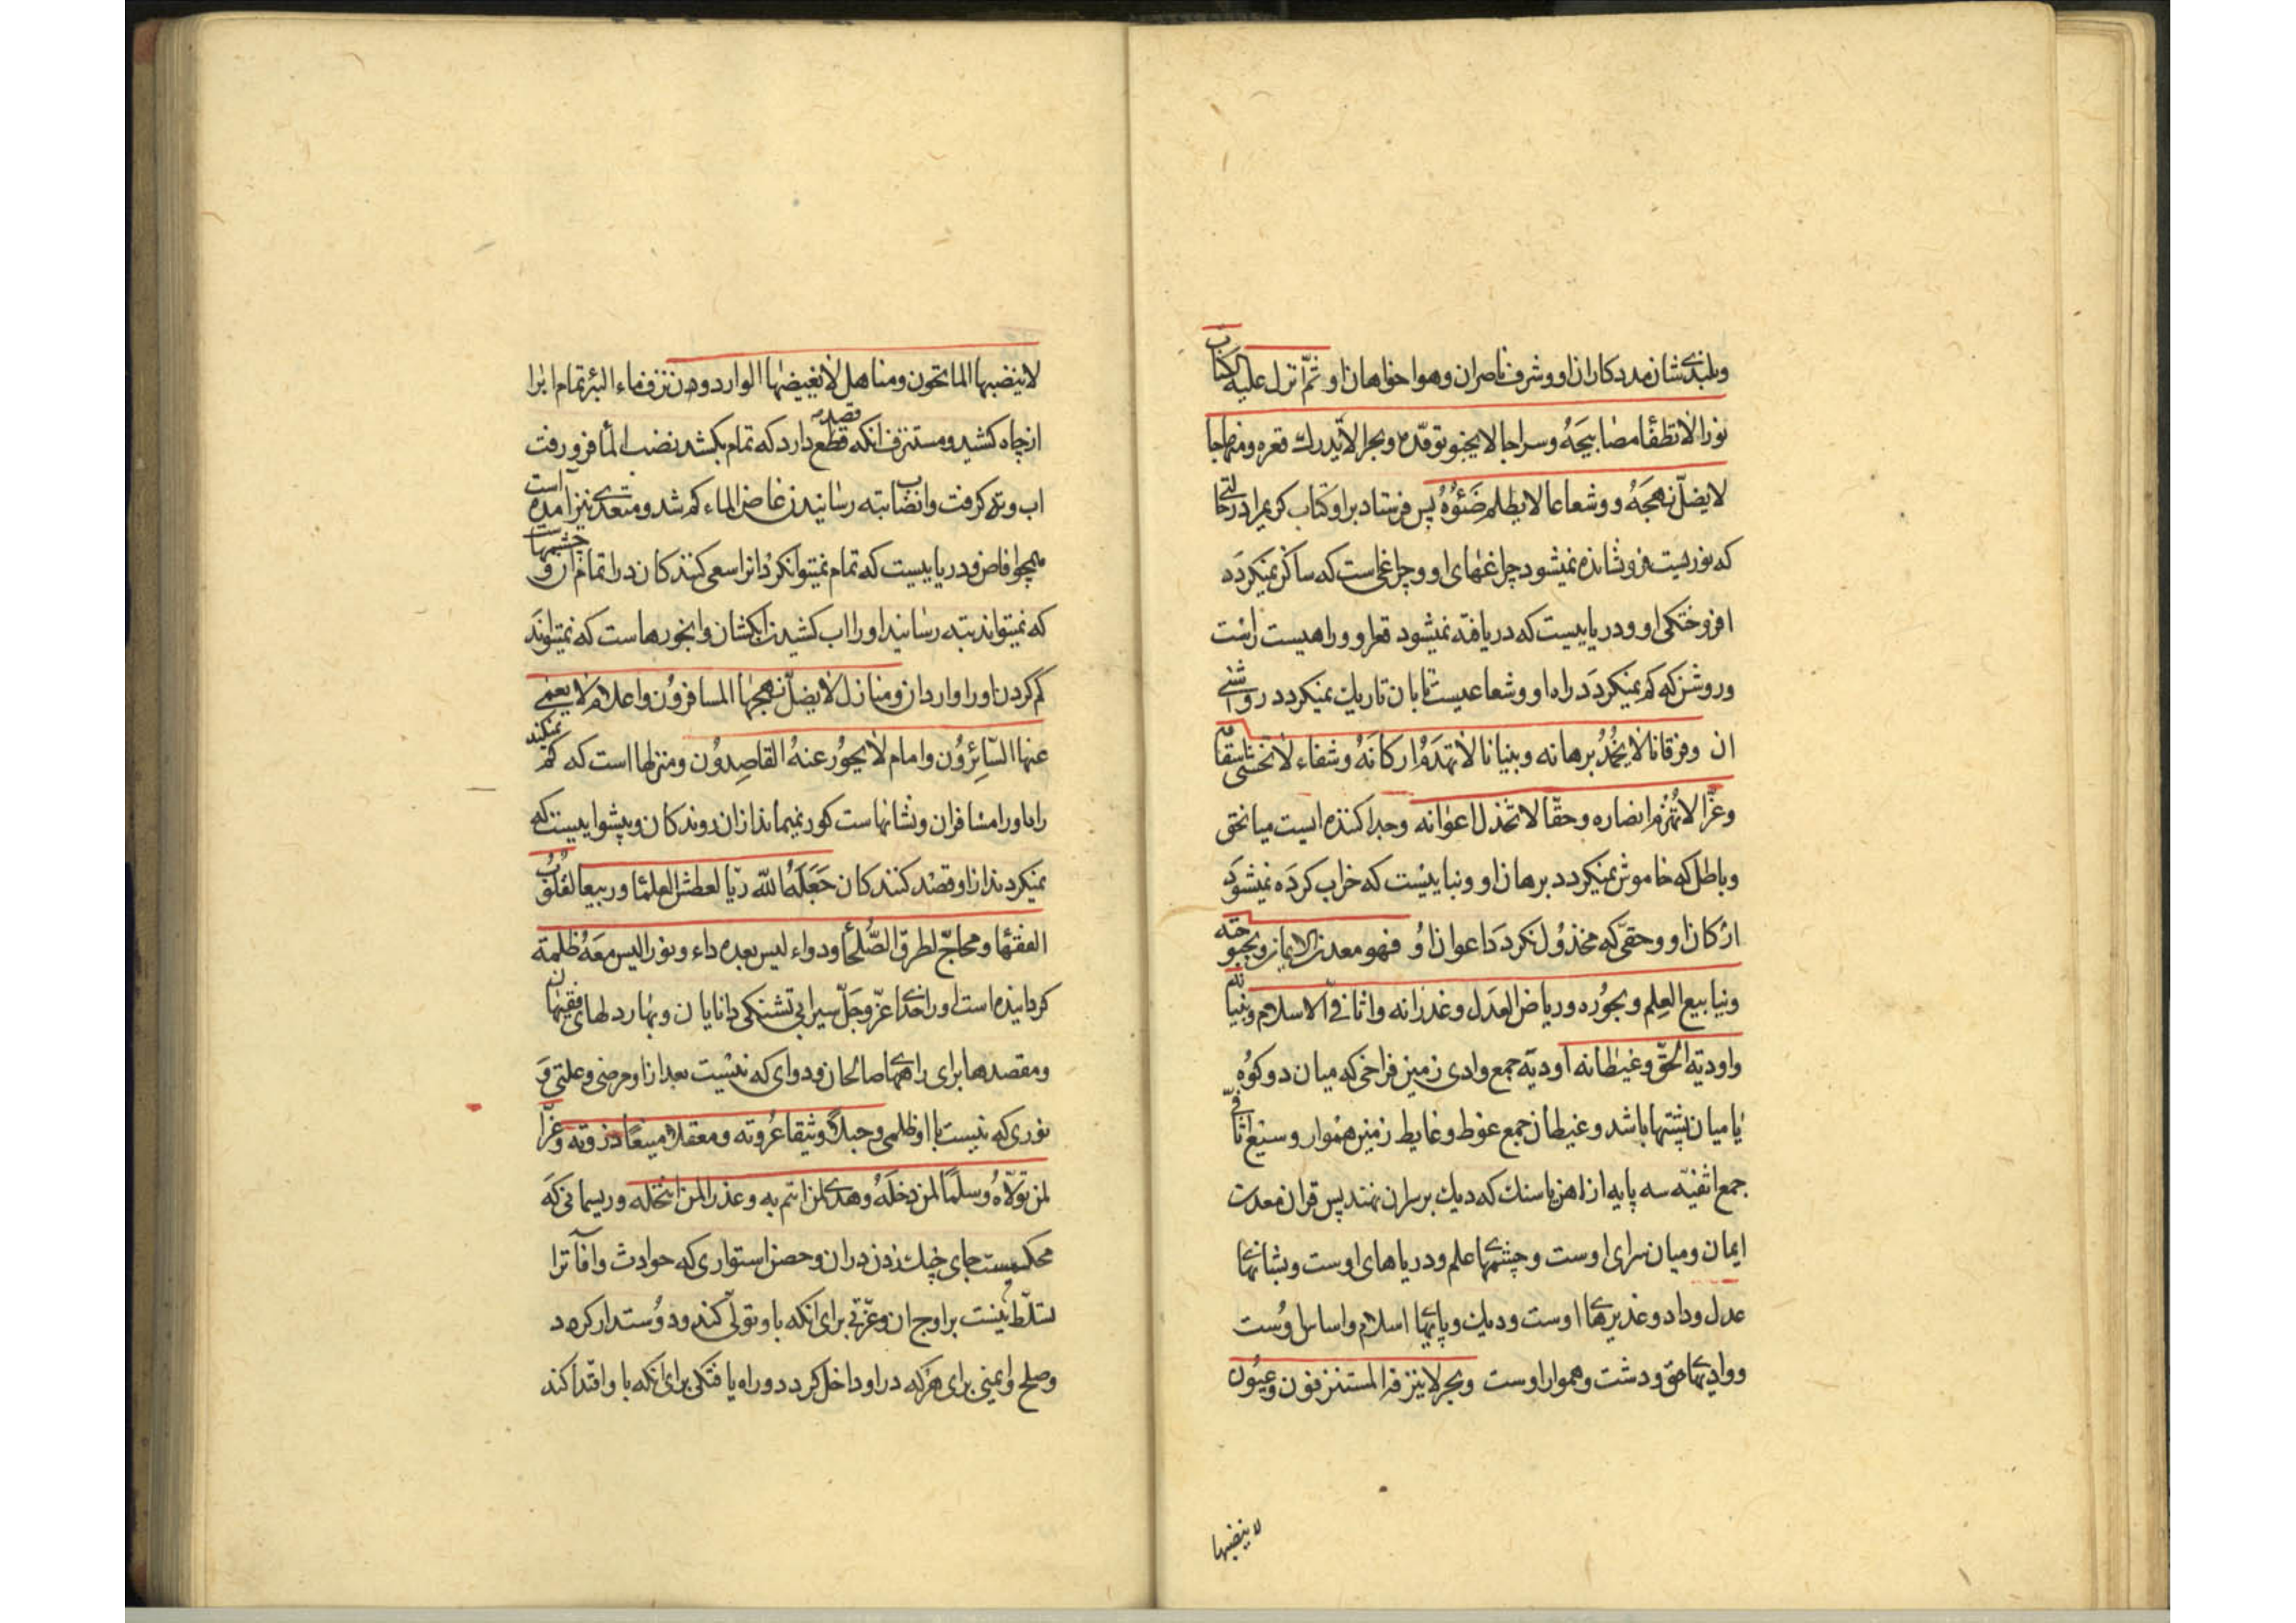 وبلندی شان مددکاران او و شرف ناصران و هواخواهان او ثمّ انزل علیه الکتاب
نورا لا تطفأ مصابیحَهُ وسراجا لا یخبو توقّده وبحرا لا یُدرك قعره ومنهاجا
لا یضلّ نهجَهُ و وشعاعا لا یظلم ضَوئُوهُ پس فرستاد براو کتاب کریم را در حالتی
که نوریست فرو نشانده نمیشود چراغهای او و چراغی است که ساکن نمیکردَد
افروختکی او و دریاییست که دریافته نمیشود قعر او و راهیست راست
و روشن که کم نمیکردَد راه او و شعاعیست تابان تاریك نمیکردد روشنی
ان وفرقانا لا یخمُدُ برهانه وبنیانا لا تهدَمُ ارکانَهُ وشفاء لا تخشی اسقامه
وعزّا لا تُهزَم انصاره وحقّا لا تخذل اعوانه وجدا کننده ایست میان حق
و باطل که خاموش نمیکردد برهان او و بنیاییست که خراب کردَه نمیشوَد
ارکان او و حقّی که مخذوُل نکردَد اعوان اوُ فهو معدن الایمان وبحبوحته
وینابیع العِلم وبحوُره وریاض العَدل وغدرانه واثافیّ الاسلام وبنیانه
واودیة الحَقّ وغیطانه اودیَة جمع وادی زمین فراخی که میان دو کوُه
یا میان پشتها باشد و غیطان جمع غوط و غایط زمین هموار و سیع اثافیّ
جمع اثفیّه سه پایه از اهن یا سنك که دیك بر سر ان نهند پس قران معدن
ایمان و میان سرای اوست و چشمهای علم و دریاهای اوست و بشانهای
عدل و داد و غدیرهای اوست و دیك و پایهای اسلام و اساس اوُست
و وادیهای حق و دشت و هموار اوست وبحر لا ینزفه المستنزفون وعیُون
لا ینضبها
لا ینضبها الماتحون ومناهل لا یغیضها الواردون نزف ماء البئر تمام اب را
از چاه کشید و مستنزف انکه قصد قطع دارد که تمام بکشد نضب الماء فرو رفت
اب و ته کرفت و انضاب بته رسانیدن غاض الماء کم شد و متعدی نیز آمده است
همچو افاض و دریاییست که تمام نمیتوانکرد انرا سعی کنندکان در اتمام ان و چشمهاست
که نمیتواند بته رسانید او را اب کشیدن ابکشان و ابخورهاست که نمیتوانَد
کم کردن او را واردان ومنازل لا یضلّ نهجها المسافروُن واعلام لا یعمی
عنها السّائِرُون وامام لا یجوُر عنهُ القاصِدوُن و منزلها است که کم نمیکند
راه او را مسافران و نشانهاست کور نمیماند از ان روندکان و پیشواییست که
نمیکردند از او قصْد کنندکان جَعَلَهُ اللّه ریّا لعطش العلمآء وربیعا لقلوُب
الفقهآء ومحاجّ لطرق الصّلحآء ودواء لیس بعده داء ونورا لیس معَهُ ظلمة
کردانیده است او را خدای عزّ و جَلّ سیرابی تشنکی دانایان و بهار دلهای فقیهان
و مقصدها برای راههای صالحان و دوای که نیست بعد از او مرضی و علتی وَ
نوری که نیست با او ظلمی وحبلا وثیقا عُروته ومعقلا منیعًا ذروته وعزّا
لمن تولّاهُ وسلمًا لمن دخلَهُ وهدی لمن ائتم به وعذرا لمن انتحَله و ریسمانی کَه
محکمست جای چنك زدن در ان و حصن استواری که حوادث و آفات را
تسلّط نیست بر اوج ان و عزّتی برای انکه با و تولّی کند و دوُستدار کردد
و صلح و ایمنی برای هرکه در او داخل کردد و راه یافتکی برای انکه با و اقتدا کند